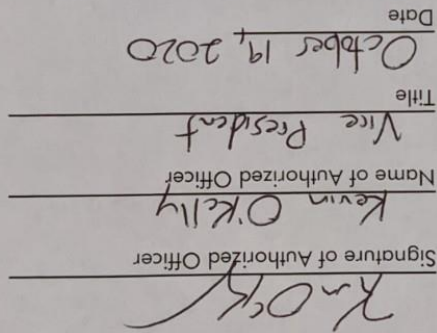 Signature of Authorized Officer
Kevin O'Kelly
Name of Authorized Officer
Vice President
Title
October 19, 2020
Date